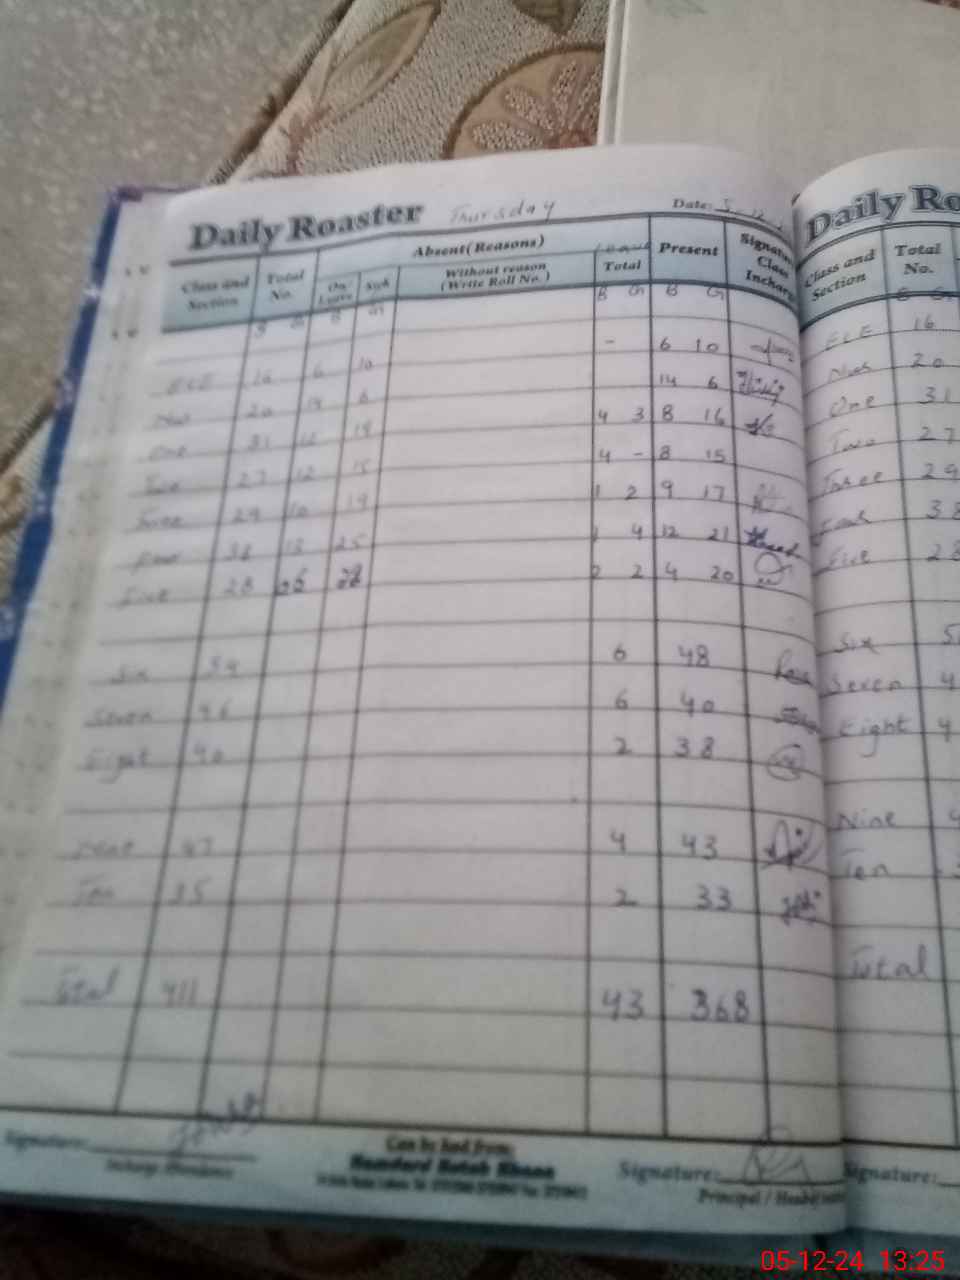 Daily Roaster Thursday Date: 5-12
Absent(Reasons) Leave
Class and Section Total No. On Leave Sick Without reason (Write Roll No.) Total Present Signature Class Incharge
B G B G B G B G
ECE 16 6 10 - 6 10
Nur 20 14 6 14 6
One 31 12 19 4 3 8 16
Two 27 12 15 4 - 8 15
Three 29 10 19 1 2 9 17
Four 38 13 25 1 4 12 21
Five 28 06 22 2 2 4 20
Six 54 6 48
Seven 46 6 40
Eight 40 2 38
Nine 47 4 43
Ten 35 2 33
Total 411 43 368
Signature:
Incharge Attendance
Can be had from:
Hamdard Kutab Khana
Signature:
Principal / Head
Daily Ro
Class and Section Total No.
ECE 16
Nur 20
One 31
Two 27
Three 29
Four 38
Five 28
Six 5
Seven 4
Eight 4
Nine 4
Ten 3
Total
Signature:
05-12-24 13:25